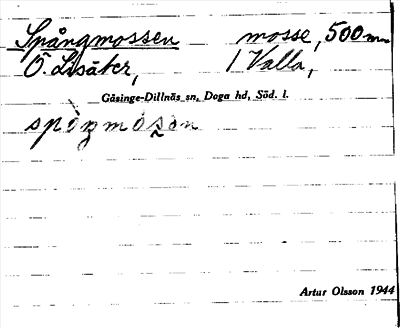 Spångmossen mosse, 500 m
Ö. Lisäker, 1 Valla,
Gåsinge-Dillnäs sn, Daga hd, Söd. l.
Artur Olsson 1944